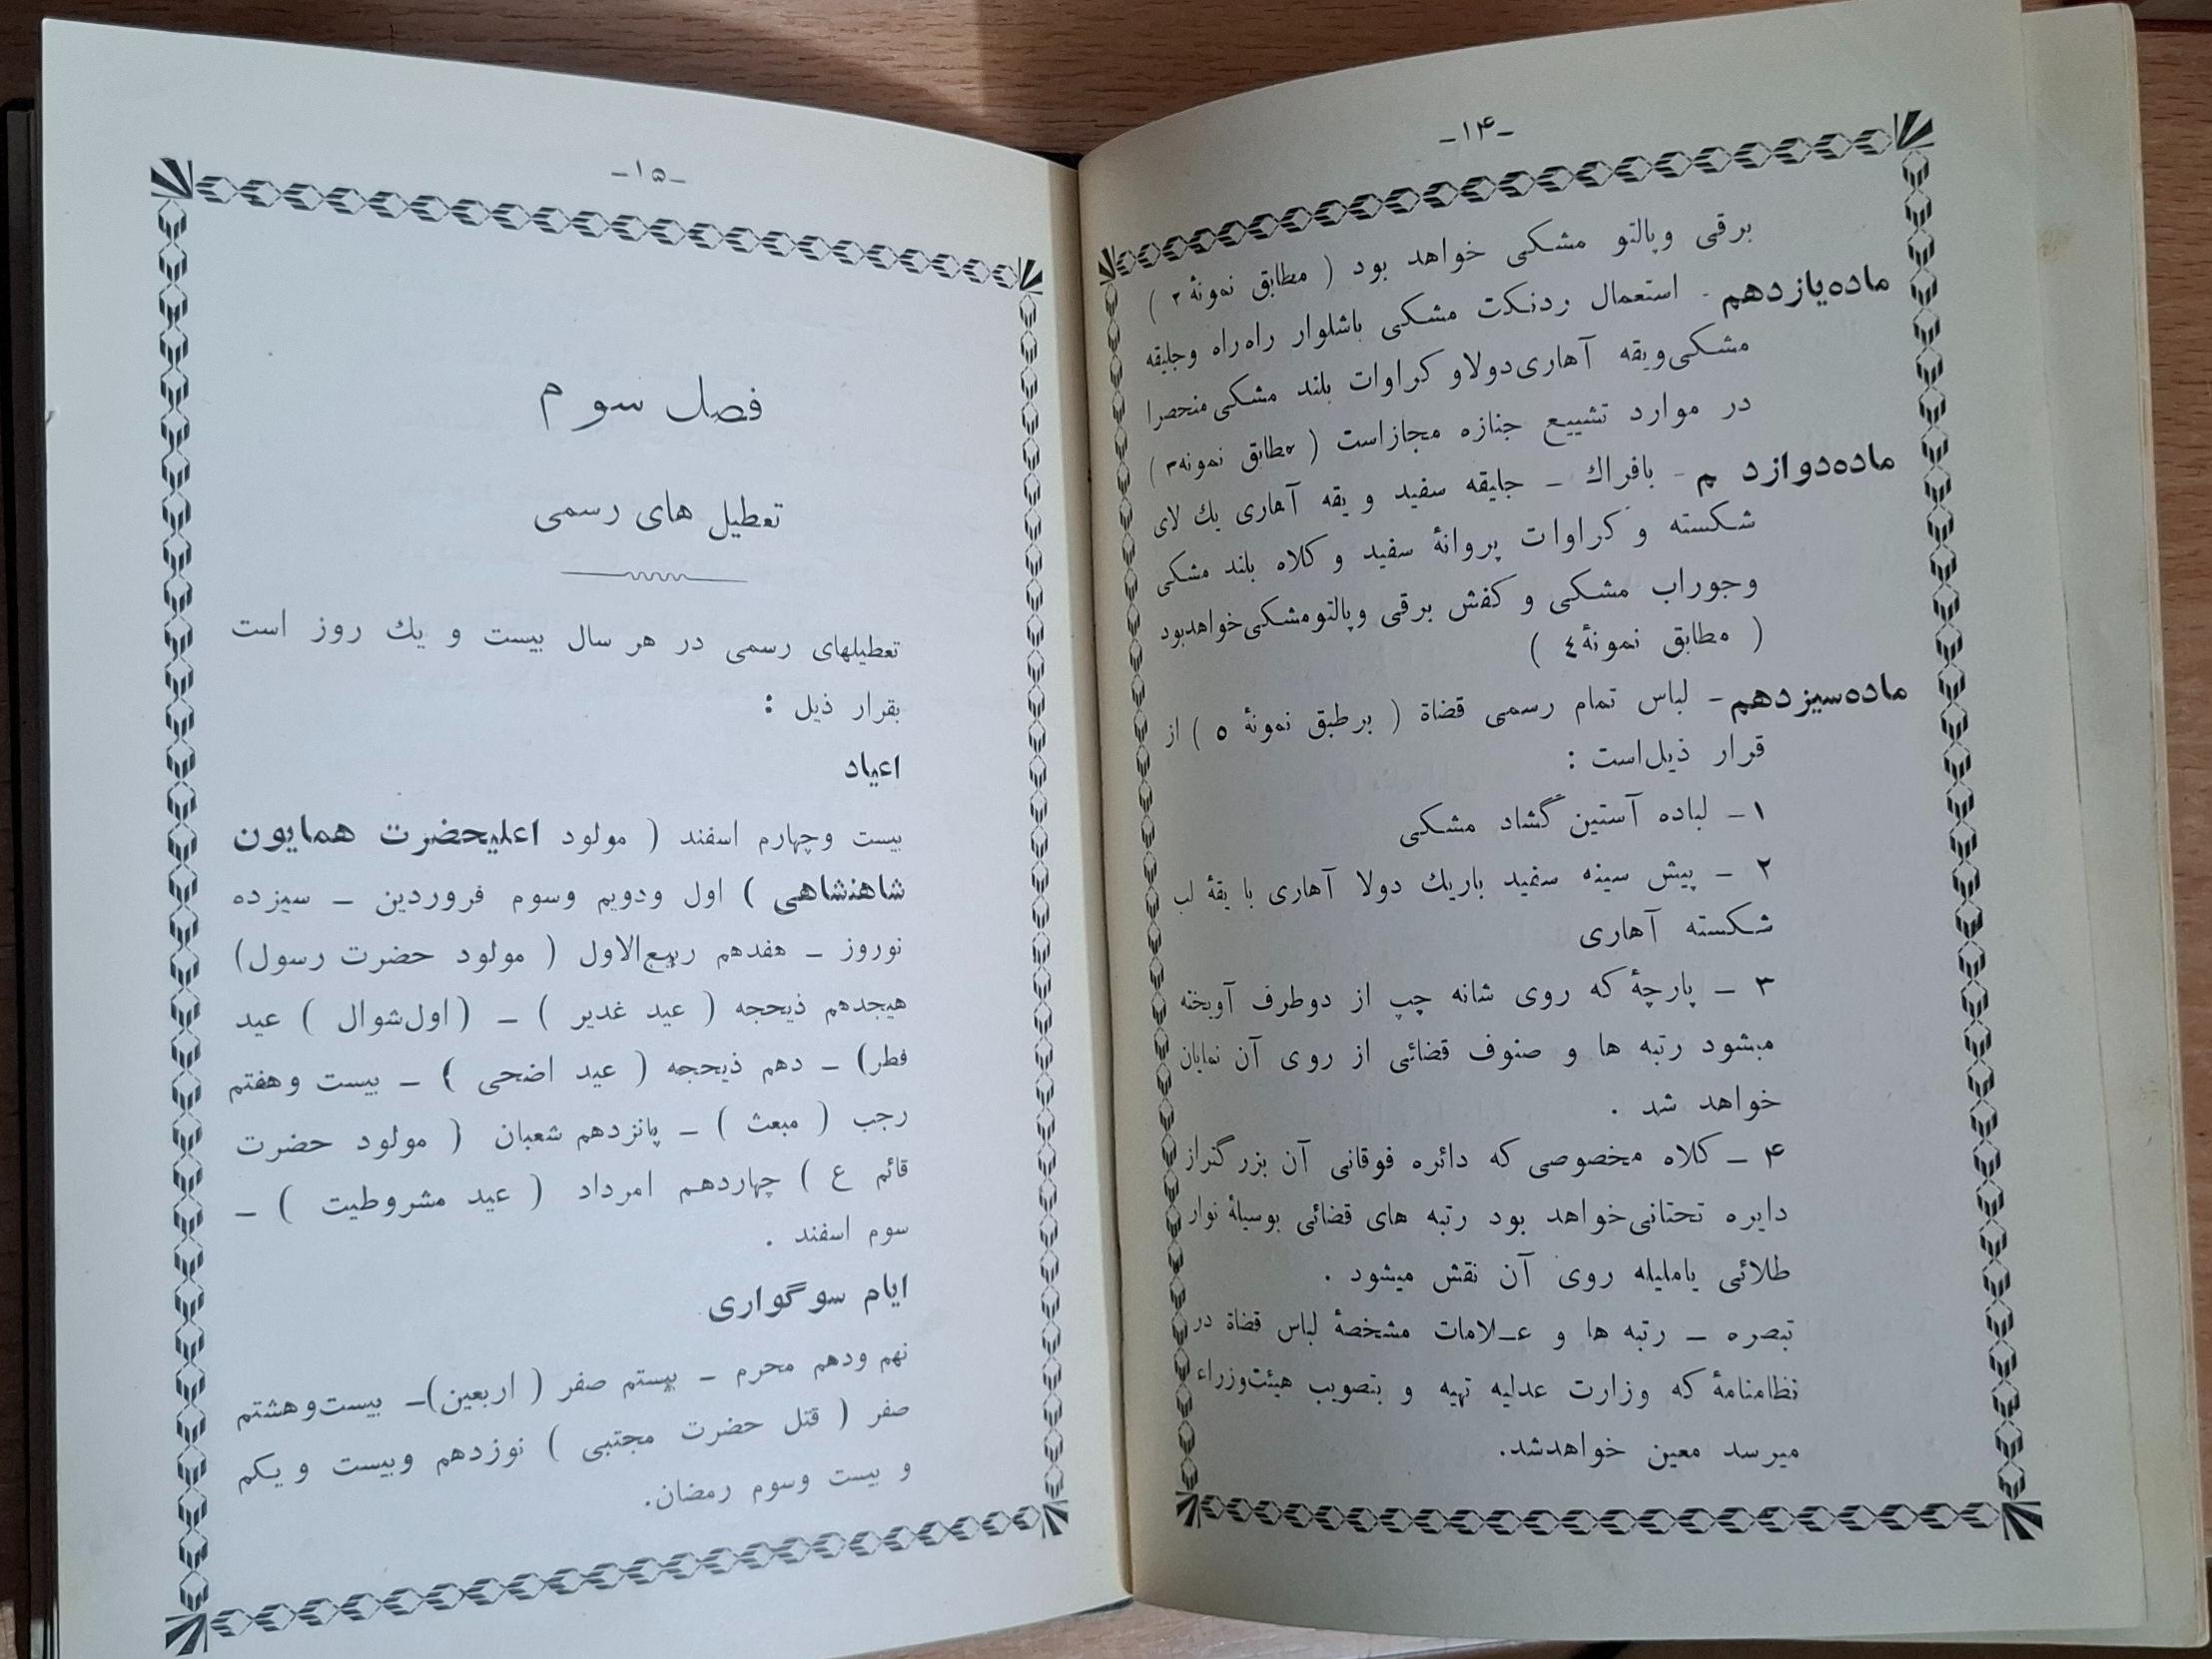 -۱۴-
برقی وپالتو مشکی خواهد بود ( مطابق نمونهٔ ۲ )
ماده‌یازدهم - استعمال ردنکت مشکی باشلوار راه‌راه وجلیقه
مشکی‌ویقه آهاری‌دولاو کراوات بلند مشکی منحصرا
در موارد تشییع جنازه مجازاست ( مطابق نمونه۳ )
ماده‌دوازد م - بافراك - جلیقه سفید و یقه آهاری یك لای
شکسته و کراوات پروانهٔ سفید و کلاه بلند مشکی
وجوراب مشکی و کفش برقی وپالتومشکی‌خواهدبود
( مطابق نمونهٔ٤ )
ماده‌سیزدهم- لباس تمام رسمی قضاة ( برطبق نمونهٔ ٥ ) از
قرار ذیل‌است :
۱- لباده آستین گشاد مشکی
۲ - پیش سینه سفید باریك دولا آهاری با یقهٔ لب
شکسته آهاری
۳ - پارچهٔ‌که روی شانه چپ از دوطرف آویخته
میشود رتبه ها و صنوف قضائی از روی آن نمایان
خواهد شد .
۴ - کلاه مخصوصی که دائره فوقانی آن بزرگتراز
دایره تحتانی‌خواهد بود رتبه های قضائی بوسیلهٔ نوار
طلائی یاملیله روی آن نقش میشود .
تبصره - رتبه ها و عـلامات مشخصهٔ لباس قضاة در
نظامنامهٔ که وزارت عدلیه تهیه و بتصویب هیئت‌وزراء
میرسد معین خواهدشد.
-۱۵-
فصل سوم
تعطیل های رسمی
تعطیلهای رسمی در هر سال بیست و یك روز است
بقرار ذیل :
اعیاد
بیست وچهارم اسفند ( مولود اعلیحضرت همایون
شاهنشاهی ) اول ودویم وسوم فروردین - سیزده
نوروز - هفدهم ربیع‌الاول ( مولود حضرت رسول)
هیجدهم ذیحجه ( عید غدیر ) - ( اول‌شوال ) عید
فطر) - دهم ذیحجه ( عید اضحی ) - بیست وهفتم
رجب ( مبعث ) - پانزدهم شعبان ( مولود حضرت
قائم ع ) چهاردهم امرداد ( عید مشروطیت ) -
سوم اسفند .
ایام سوگواری
نهم ودهم محرم - بیستم صفر ( اربعین)- بیست‌وهشتم
صفر ( قتل حضرت مجتبی ) نوزدهم وبیست و یکم
و بیست وسوم رمضان.